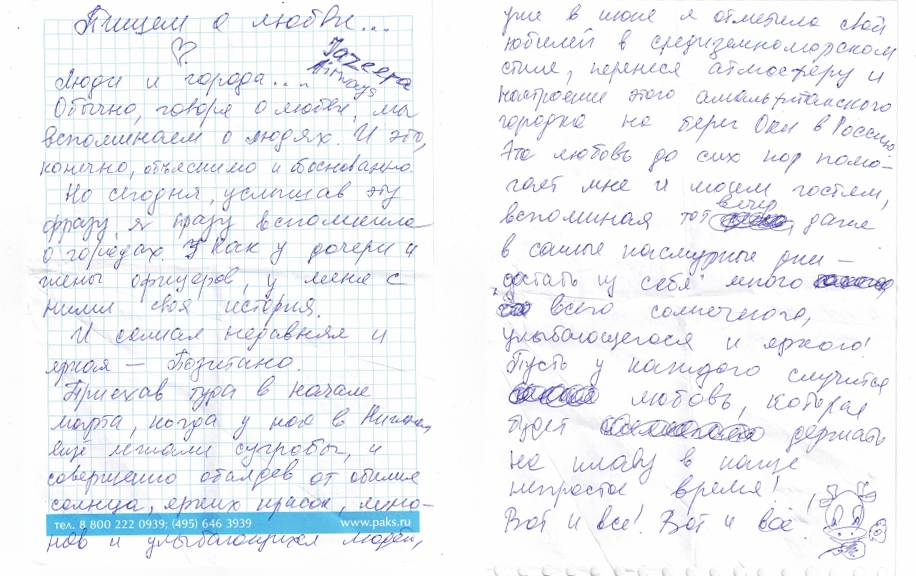 Пишем о любви...
Jazeera
Airways
Люди и города....
Обычно, говоря о любви, мы
вспоминаем о людях. И это,
конечно, объяснимо и обоснованно.
Но сегодня, услышав эту
фразу, я сразу вспомнила
о городах. Как у дочери и
жены офицеров, у меня с
ними своя история.
И самая недавняя и
яркая — Позитано.
Приехав туда в начале
марта, когда у нас в
ещё лежали сугробы, и
совершенно обалдев от обилия
солнца, ярких красок, лимо-
тел. 8 800 222 0939; (495) 646 3939 www.paks.ru
нов и улыбающихся людей,
уже в июне я отметила свой
юбилей в средиземноморском
стиле, перенеся атмосферу и
настроение этого амальфитанского
городка на берег Оки в Россию
Эта любовь до сих пор помо-
гает мне и моим гостям,
вспоминая тот вечер, даже
в самые пасмурные дни —
достать из себя много
всего солнечного,
улыбающегося и яркого!
Пусть у каждого случится
любовь, которая
будет держать
на плаву в наше
непростое время!
Вот и все! Вот и всё!